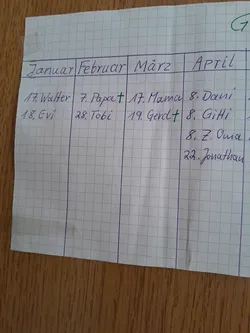 G
Januar Februar März April
17. Walter 7. Papa✝ 17. Mama 8. Dani
18. Evi 28. Tobi 19. Gerd✝ 8. Gitti
8. Z. Oma
22. Jonathan